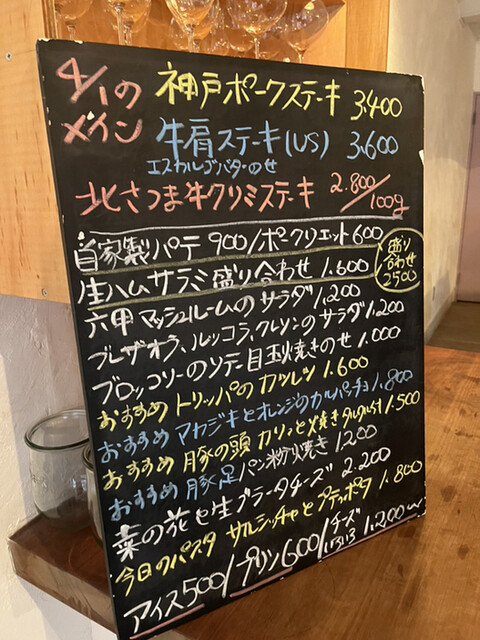 4/1の
メイン
神戸ポークステーキ 3,400
牛肩ステーキ(US) 3,600
エスカルゴバターのせ
北さつま牛クリミステーキ 2.800/100g
自家製パテ 900/ポークリエット600
生ハムサラミ盛り合わせ 1.600
盛り合わせ 2500
六甲マッシュルームのサラダ 1,200
ブレザオラ、ルッコラ、クレソンのサラダ 1,200
ブロッコリーのソテー目玉焼きのせ 1.000
おすすめ トリッパのカツレツ 1.600
おすすめ マカジキとオレンジのカルパッチョ 1,800
おすすめ 豚の頭 カリッと焼きタルタル付 1.500
おすすめ 豚足パン粉焼き 1200
菜の花と生ブラータチーズ 2.200
今日のパスタ サルシッチャとプンタレッラ 1.800
アイス500/プリン600/チーズいろいろ 1,200〜